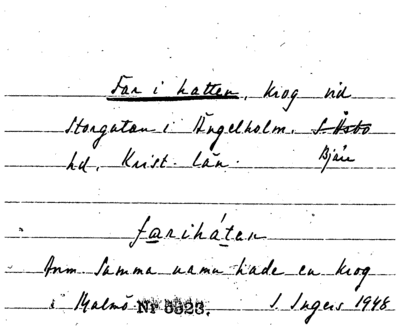 Far i hatten, krog vid
Storgatan i Ängelholm. S. Åsbo
hd. Krist. län. Bjäre
farihá̱ten
Anm Samma namn hade en krog
i Malmö Nr 5523. I. Ingers 1948